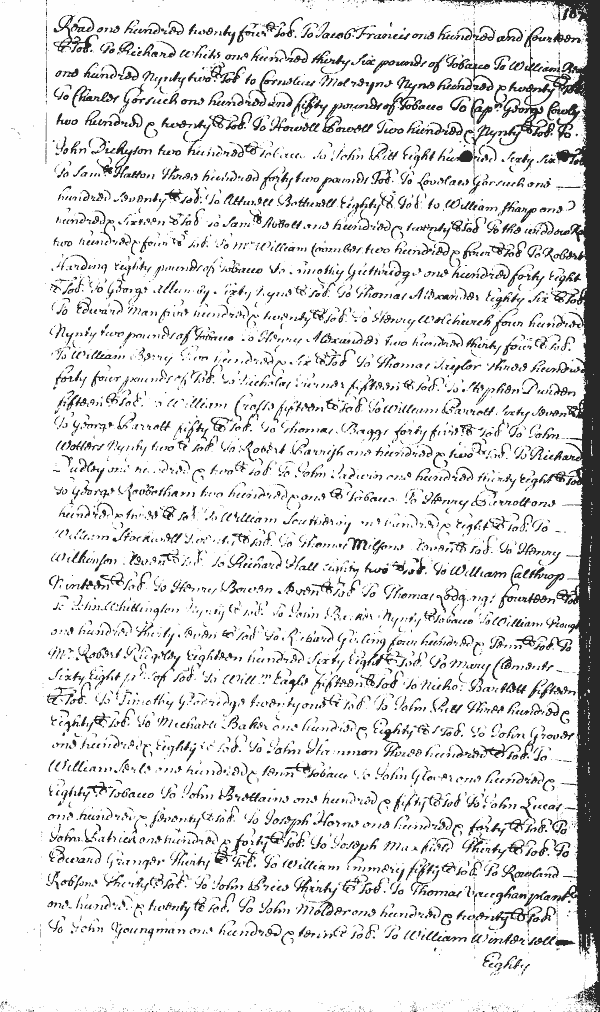 167
Road one hundred twenty four lb Tob. To Jacob Francis one hundred and fourteen
lb Tob. To Richard White one hundred thirty six pounds of Tobacco To William
one hundred Nynty two lb Tob to Cornelius Mulreyne Nyne hundred & twenty lb Tob
To Charles Gorsuch one hundred and fifty pounds of Tobacco To Capt. George Cowly
two hundred & twenty lb Tob. To Howell Powell Two hundred & Nynty lb Tob. To
John Dickyson two hundred lb Tobacco To John Pitt Eight hundred Sixty Six lb Tob
To Saml. Hatton Three hundred forty two pounds Tob. To Lovelace Gorsuch one
hundred Seventy lb Tob. To Attwell Bottwell Eighty lb Tob. to William Sharp one
hundred & Sixteen lb Tob To Saml. Abbott one hundred & twenty lb Tob To the widdow
two hundred & four lb Tob. To Mr William Coombes two hundred & four lb Tob To Robert
Harding Eighty pounds of Tobacco To Timothy Guthridge one hundred forty Eight
lb Tob. To George Allumby Sixty Nyne lb Tob. To Thomas Alexander Eighty Six lb Tob
To Edward Man five hundred & twenty lb Tob. To Henry Wolchurch four hundred
Nynty two pounds of Tobacco To Henry Alexander two hundred thirty four lb Tob.
To William Berry Two hundred & Six lb Tob. To Thomas Taylor three hundred
forty four pounds of Tob. To Nicholas Turner fifteen lb Tob. To Stephen Durden
fifteen lb Tob. To William Crosse fifteen lb Tob To William Parrott Sixty seven lb
To George Parrott fifty lb Tob. To Thomas Baggs forty five lb Tob To John
Wotters Nynty two lb Tob. To Robert Parrish one hundred & two lb Tob. To Richard
Dudley one hundred & two lb Tob To John Jadwin one hundred thirty Eight lb Tob
To George Robbotham two hundred & one lb Tobacco To Henry Parrott one
hundred & three lb Tob To William Southerby one hundred & Eight lb Tob. To
William Stockwell lb Tob To Thomas Milsone Eleven lb Tob. To Henry
Wilkinson Eleven lb Tob. To Richard Hall eighty two lb Tob. To William Calthrop
Ninteen lb Tob To Henry Bowen Seven lb Tob To Thomas fourteen lb Tob
To John Whittington Nynty lb Tob To John Barker Nynty lb Tobacco To William
one hundred thirty seven lb Tob To Richard Girling four hundred & Tenn lb Tob To
Mr. Robert Ridgley Eighteen hundred Sixty Eight lb Tob. To Mary Clements
Sixty Eight pds of Tob To Willm. Eagle fifteen lb Tob To Nicho. Bartlett fifteen
lb Tob. To Timothy Goodridge twenty one lb Tob To John Pitt Three hundred &
Eighty lb Tob. To Michaell Baker one hundred & Eighty lb Tob. To John Groves
one hundred & Eighty lb Tob. To John Hammon Three hundred lb Tob. To
William Serle one hundred & tenn lb Tobacco To John Glover one hundred &
Eighty lb Tobacco To John Brettaine one hundred & fifty lb Tob To John Lucas
one hundred & seventy lb Tob. To Joseph Horne one hundred & forty lb Tob. To
John Patrick one hundred & forty lb Tob. To Joseph Maxfield Thirty lb Tob. To
Edward Granger Thirty lb Tob. To William Emmery fifty lb Tob. To Rowland
Robsone Thirty lb Tob. To John Price Thirty lb Tob. To Thomas Vaughan plantr.
one hundred & twenty lb Tob. To John Molder one hundred & twenty lb Tob
To John Youngman one hundred & tenn lb Tob. To William Wintersell
Eighty